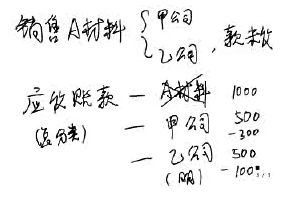 销售A材料 { 甲公司
乙公司 , 款未收
应收账款 — A材料 1000
(总分类) — 甲公司 500
-300
— 乙公司 500
(明) -100